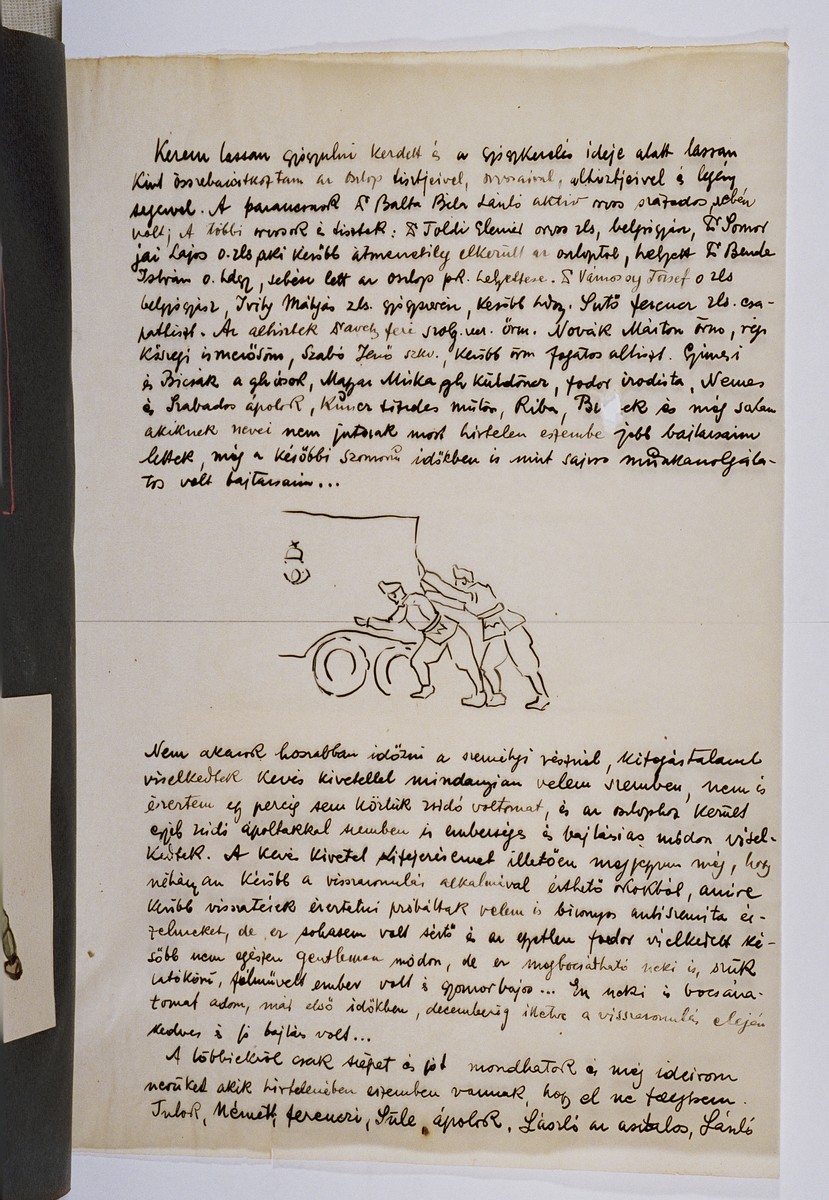 Kezem lassan gyógyulni kezdett és a gyógykezelés ideje alatt lassan
kint összebarátkoztam az oszlop tisztjeivel, orvosaival, altisztjeivel és legény
ségével. A parancsnok Dr Balta Béla László aktiv orvos százados sebén
volt; A többi orvosok és tisztek: Dr Toldi Elemér orvos zls, belgyógyász, Dr Somor
jai Lajos o. zls, aki később átmenetileg elkerült az oszloptól, helyett Dr Benda
István o. hdgy, sebész lett az oszlop pk. helyettese. Dr Vámossy József o zls
belgyógyász, Ivity Mátyás zls. gyógyszerész, később hdgy. Sütő ferenc zls. csa-
pattiszt. Az altisztek feri szolg. vez. őrm. Novák Márton őrm, régi
kőszegi ismerősöm, Szabó Jenő szkv., később őrm fogatos altiszt. Gimesi
és Bicsák a ghósok, Magyar Miska gh küldönc, fodor irodista, Nemes
és Szabados ápolók, tizedes műtős, Riba, és még sokan
akiknek nevei nem jutnak most hirtelen eszembe jobb bajtársaim
lettek, még a későbbi szomorú időkben is mint sajnos munkaszolgála-
tos volt bajtársaim...
Nem akarok hosszabban időzni a személyi résznél, kifogástalanul
viselkedtek kevés kivétellel mindanyian velem szemben, nem is
éreztem egy percig sem köztük zsidó voltomat, és az oszlophoz került
egyéb zsidó ápoltakkal szemben is emberséges és bajtársias módon visel-
kedtek. A kevés kivétel kifejezésemet illetően megjegyzem még, hogy
néhányan később a visszavonulás alkalmával érthető okokból, amire
később visszatérek éreztetni próbáltak velem is bizonyos antiszemita ér-
zelmeket, de ez sohasem volt sértő és az egyetlen fodor viselkedett ké-
sőbb nem egészen gentleman módon, de ez megbocsátható neki is, szűk
látókörű, félművelt ember volt és gyomorbajos... Én neki is bocsána-
tomat adom, már első időkben, decemberig illetve a visszavonulás elején
kedves és jó bajtárs volt...
A többiekről csak szépet és jót mondhatok és még ideirom
nevüket akik hirtelenében eszemben vannak, hogy el ne felejtsem.
Turok, Németh, ferenczi, Süle, ápolók, László az asztalos, László